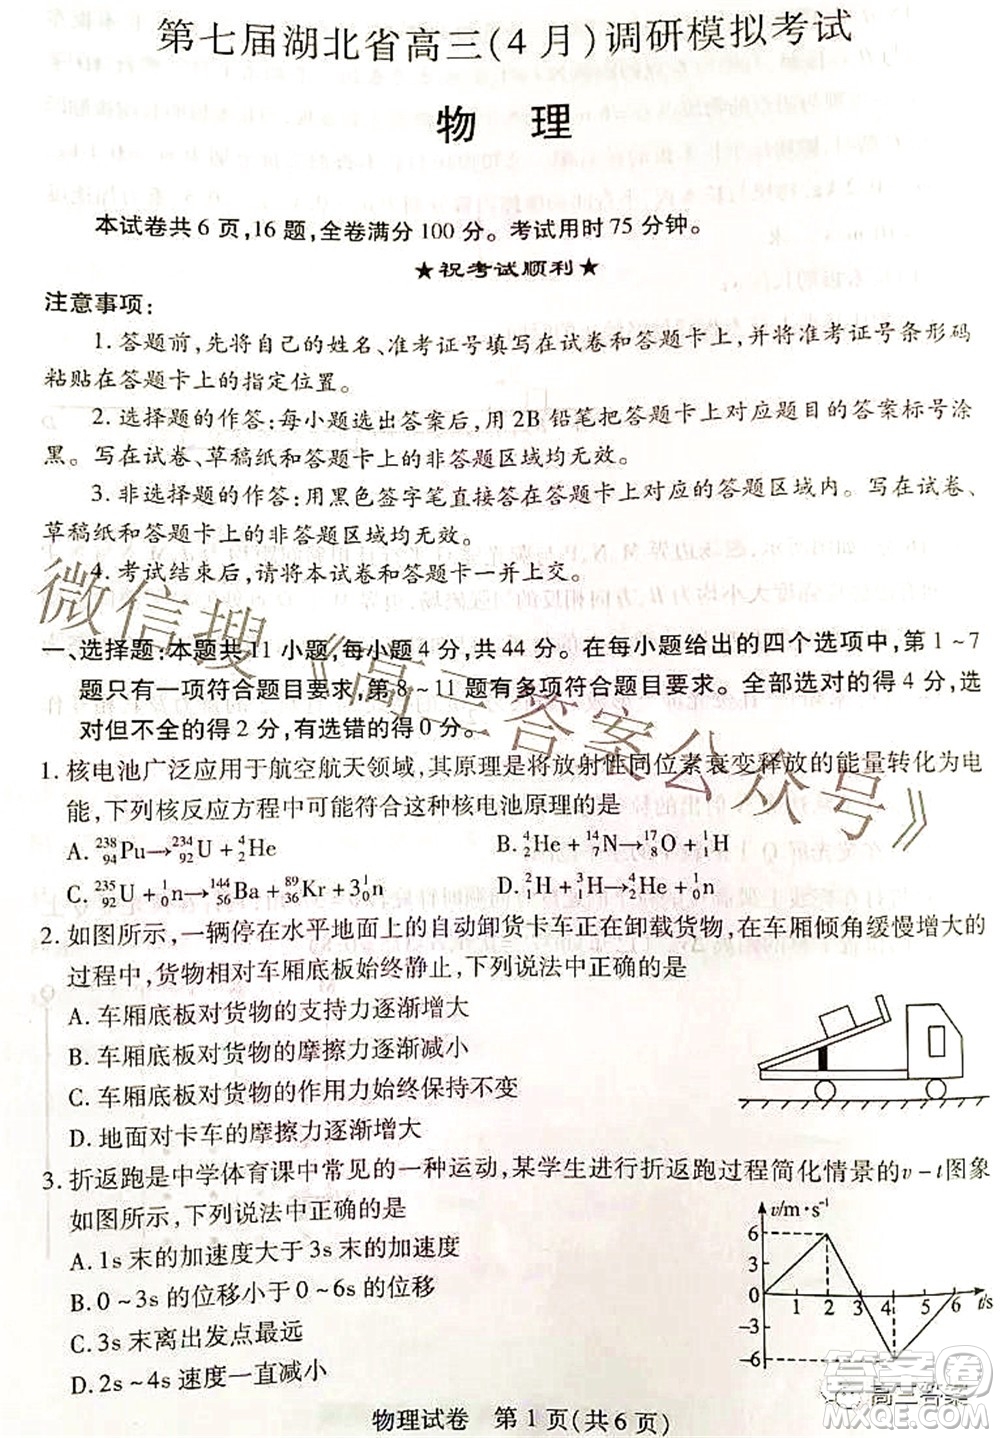 第七届湖北省高三(4月)调研模拟考试
物 理
本试卷共6页,16题,全卷满分100分。考试用时75分钟。
★祝考试顺利★
注意事项:
1. 答题前,先将自己的姓名、准考证号填写在试卷和答题卡上,并将准考证号条形码
粘贴在答题卡上的指定位置。
2. 选择题的作答:每小题选出答案后,用2B铅笔把答题卡上对应题目的答案标号涂
黑。写在试卷、草稿纸和答题卡上的非答题区域均无效。
3. 非选择题的作答:用黑色签字笔直接答在答题卡上对应的答题区域内。写在试卷、
草稿纸和答题卡上的非答题区域均无效。
4. 考试结束后,请将本试卷和答题卡一并上交。
微信搜《高三答案公众号》
一、选择题:本题共11小题,每小题4分,共44分。在每小题给出的四个选项中,第1~7
题只有一项符合题目要求,第8~11题有多项符合题目要求。全部选对的得4分,选
对但不全的得2分,有选错的得0分。
1. 核电池广泛应用于航空航天领域,其原理是将放射性同位素衰变释放的能量转化为电
能,下列核反应方程中可能符合这种核电池原理的是
A. ²³⁸₉₄Pu→²³⁴₉₂U+⁴₂He B. ⁴₂He+¹⁴₇N→¹⁷₈O+¹₁H
C. ²³⁵₉₂U+¹₀n→¹⁴⁴₅₆Ba+⁸⁹₃₆Kr+3¹₀n D. ²₁H+³₁H→⁴₂He+¹₀n
2. 如图所示,一辆停在水平地面上的自动卸货卡车正在卸载货物,在车厢倾角缓慢增大的
过程中,货物相对车厢底板始终静止,下列说法中正确的是
A. 车厢底板对货物的支持力逐渐增大
B. 车厢底板对货物的摩擦力逐渐减小
C. 车厢底板对货物的作用力始终保持不变
D. 地面对卡车的摩擦力逐渐增大
3. 折返跑是中学体育课中常见的一种运动,某学生进行折返跑过程简化情景的v-t图象
如图所示,下列说法中正确的是
A. 1s末的加速度大于3s末的加速度
B. 0~3s的位移小于0~6s的位移
C. 3s末离出发点最远
D. 2s~4s速度一直减小
v/m·s⁻¹
6
3
0
-3
-6
1 2 3 4 5 6 t/s
物理试卷 第1页(共6页)
高三答案
答案圈
MXQE.COM